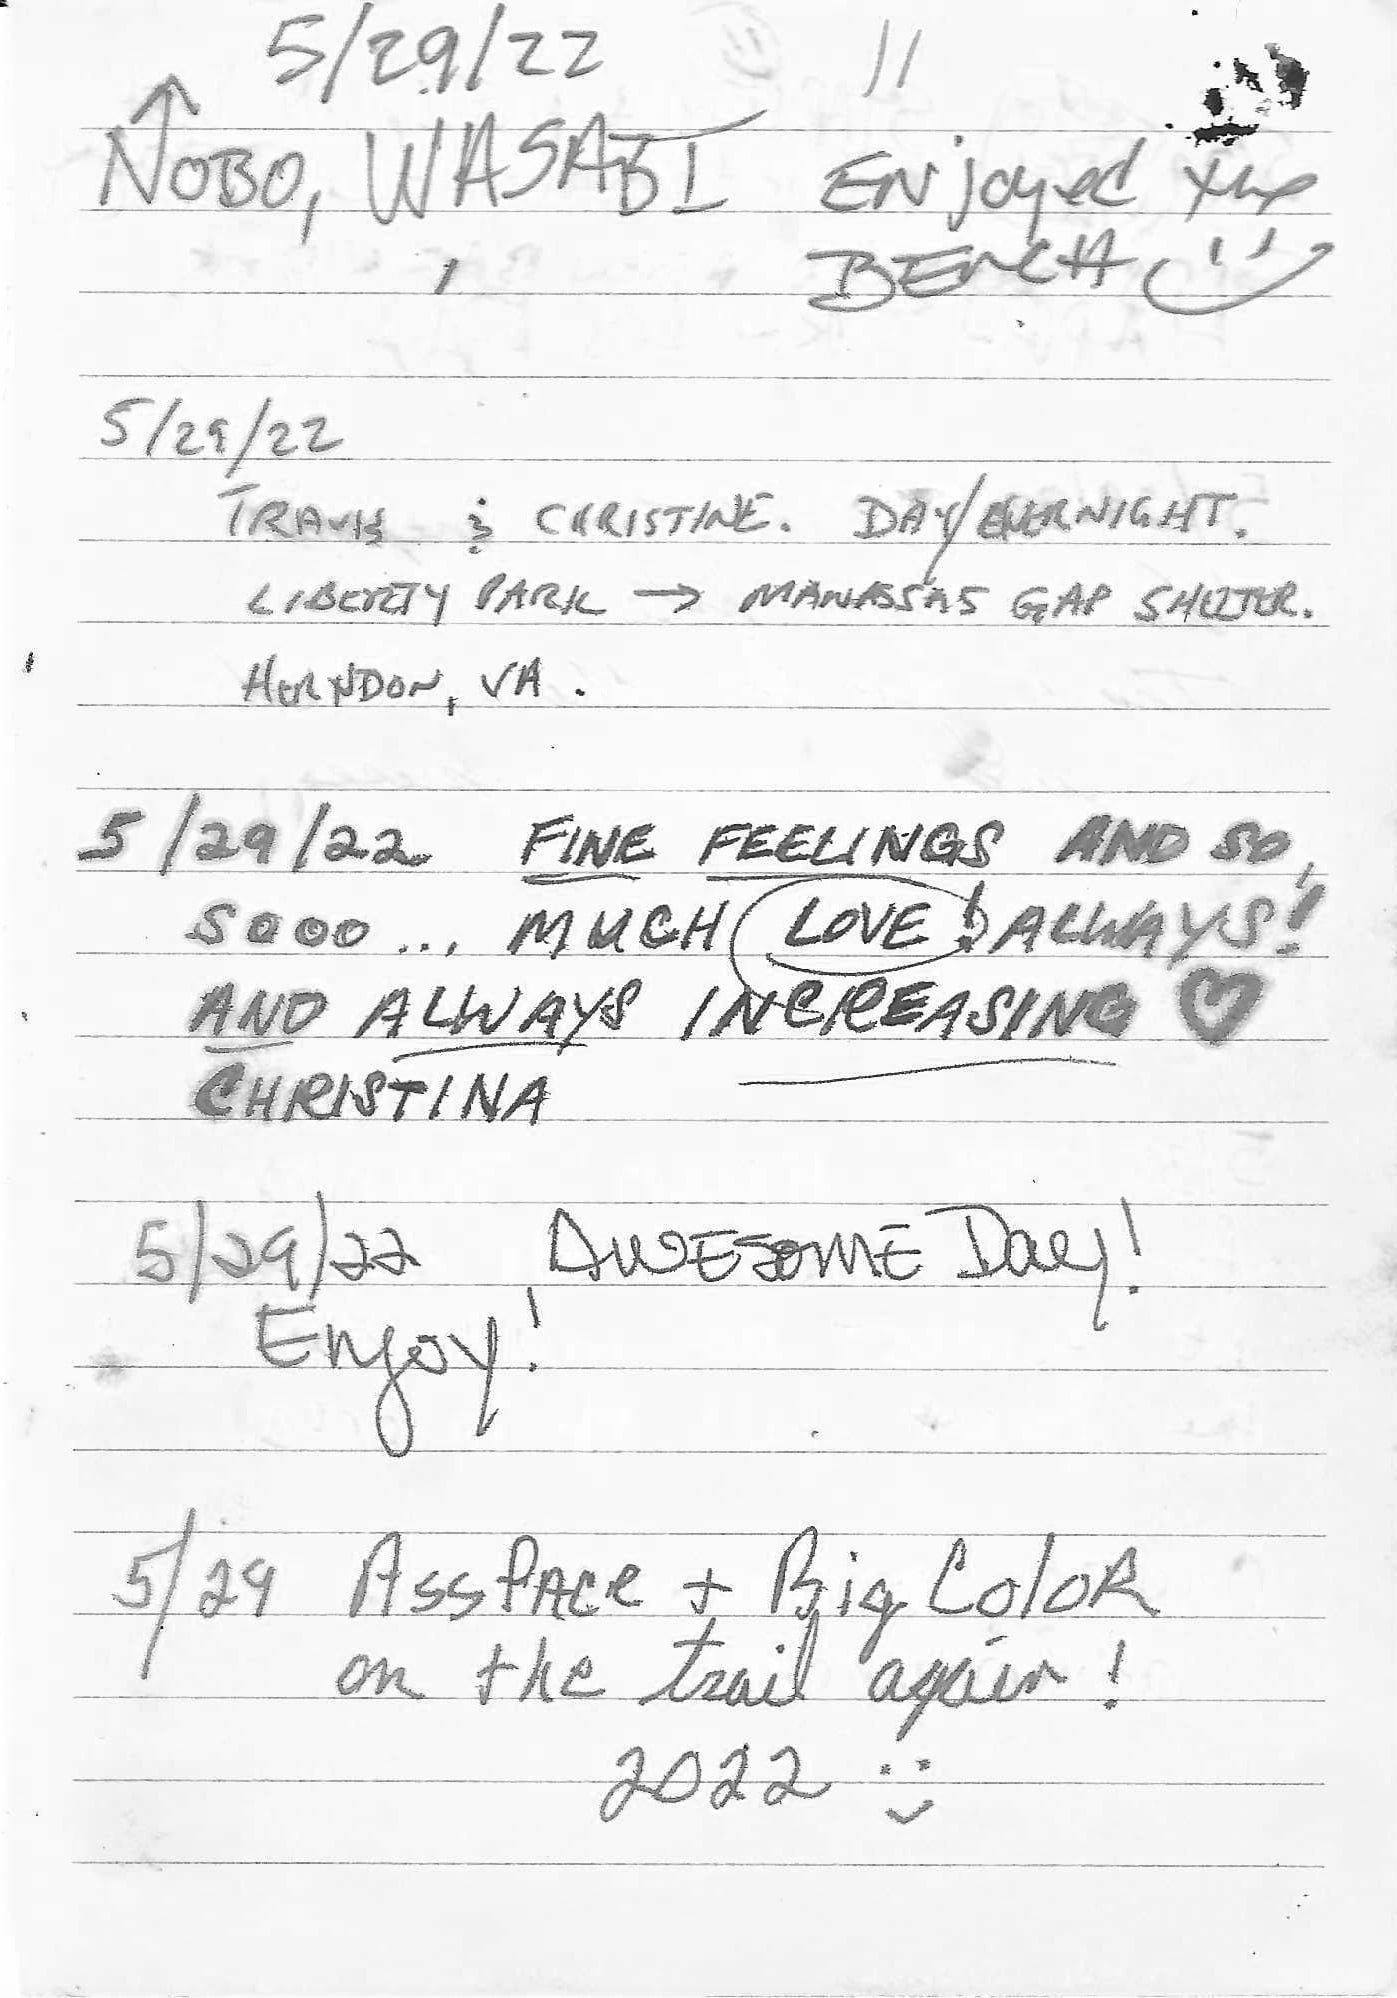 5/29/22
NOBO, WASABI Enjoyed the
BENCH
5/29/22
TRAVIS & CHRISTINE. DAY/OVERNIGHT.
LIBERTY PARK → MANASSAS GAP SHELTER.
HERNDON, VA.
5/29/22 FINE FEELINGS AND SO,
SOOO... MUCH LOVE! ALWAYS!
AND ALWAYS INCREASING ♡
CHRISTINA
5/29/22 AWESOME Day!
Enjoy!
5/29 AssPAce + Big ColoR
on the trail again!
2022